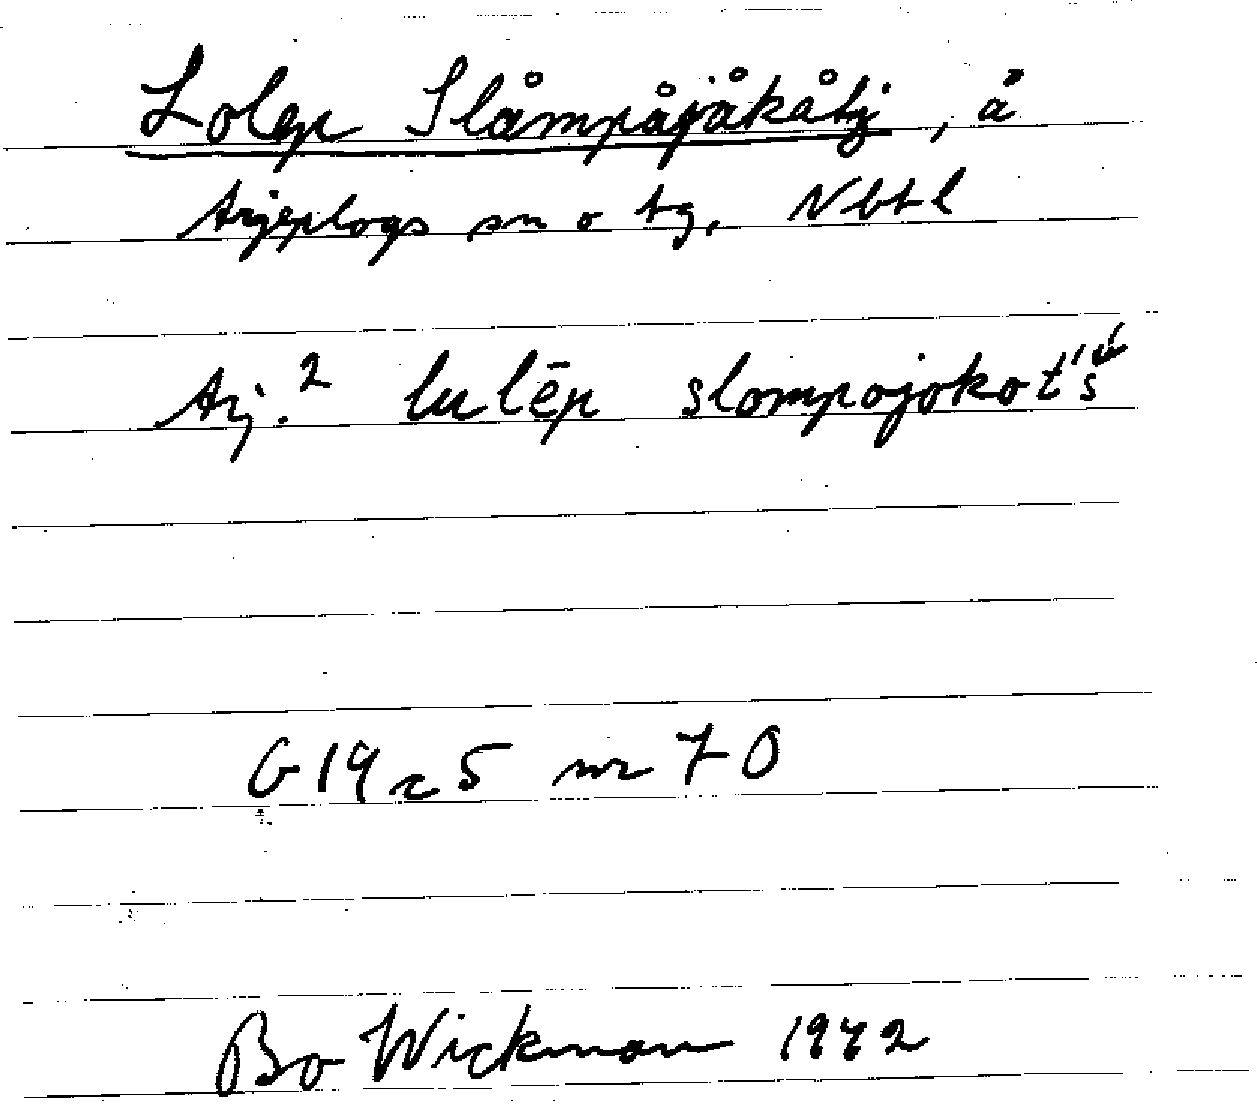 Lolep Slåmpåjåkåtj, å
Arjeplogs sn o tg, Nbtl
Arj.² lulēp slompojokot́š́
G 19 c 5 nr 70
Bo Wickman 1942